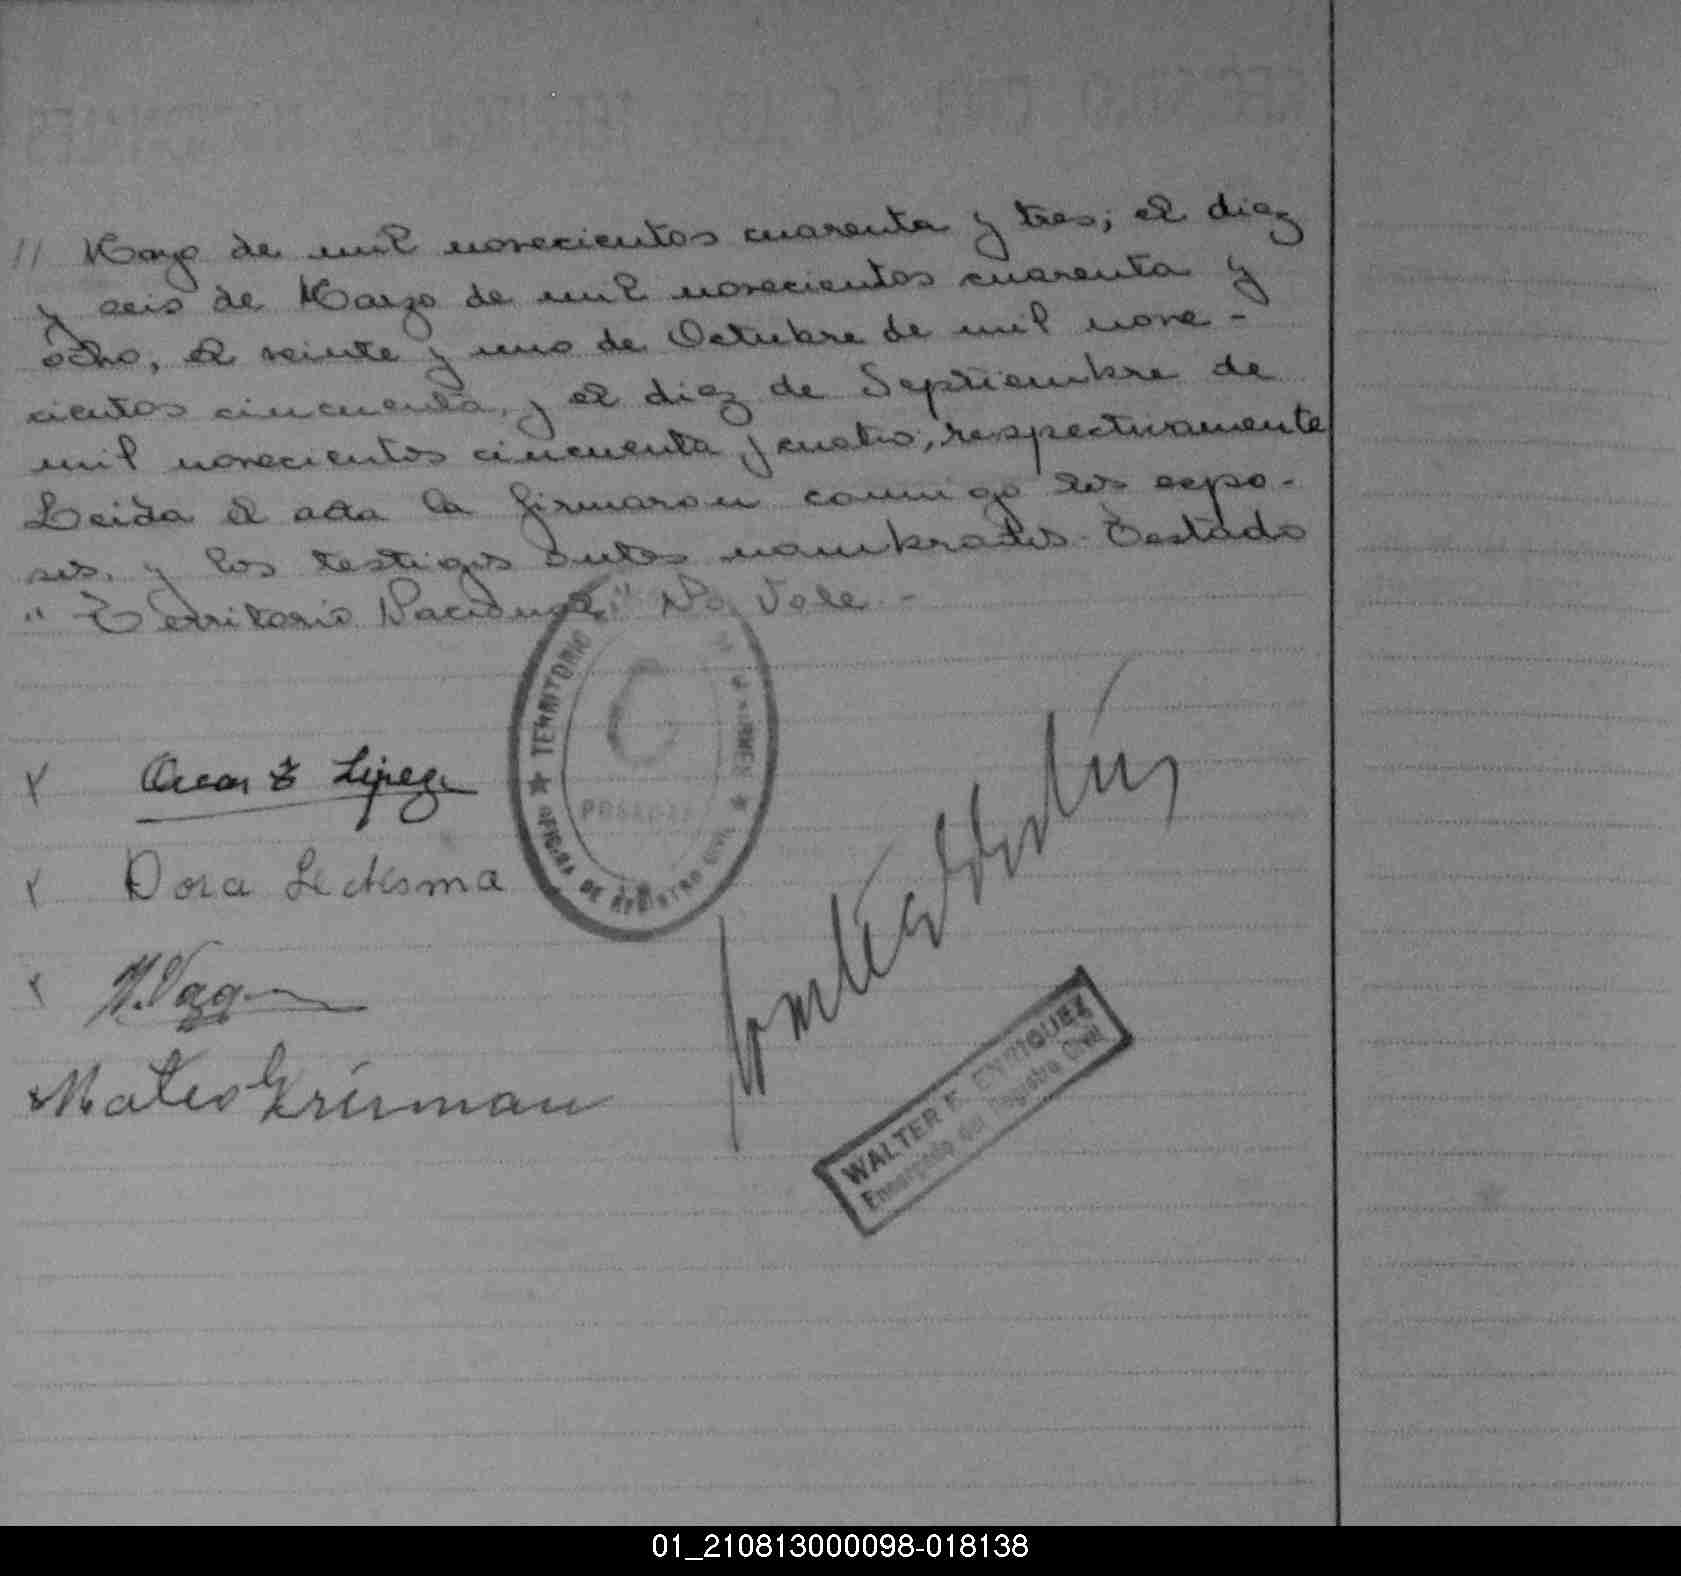 // Mayo de mil novecientos cuarenta y tres; el diez
y seis de Marzo de mil novecientos cuarenta y
ocho, el veinte y uno de Octubre de mil nove-
cientos cincuenta, y el diez de Septiembre de
mil novecientos cincuenta y cuatro, respectivamente
Leida el acta la firmaron conmigo los espo-
sos, y los testigos antes nombrados. Testado
"Territorio Nacional" No Vale -
TERRITORIO
POSADAS
OFICINA DE REGISTRO CIVIL
Dora Ledesma
Mateo
WALTER F. ENRIQUEZ
Encargado del Registro Civil
01_210813000098-018138